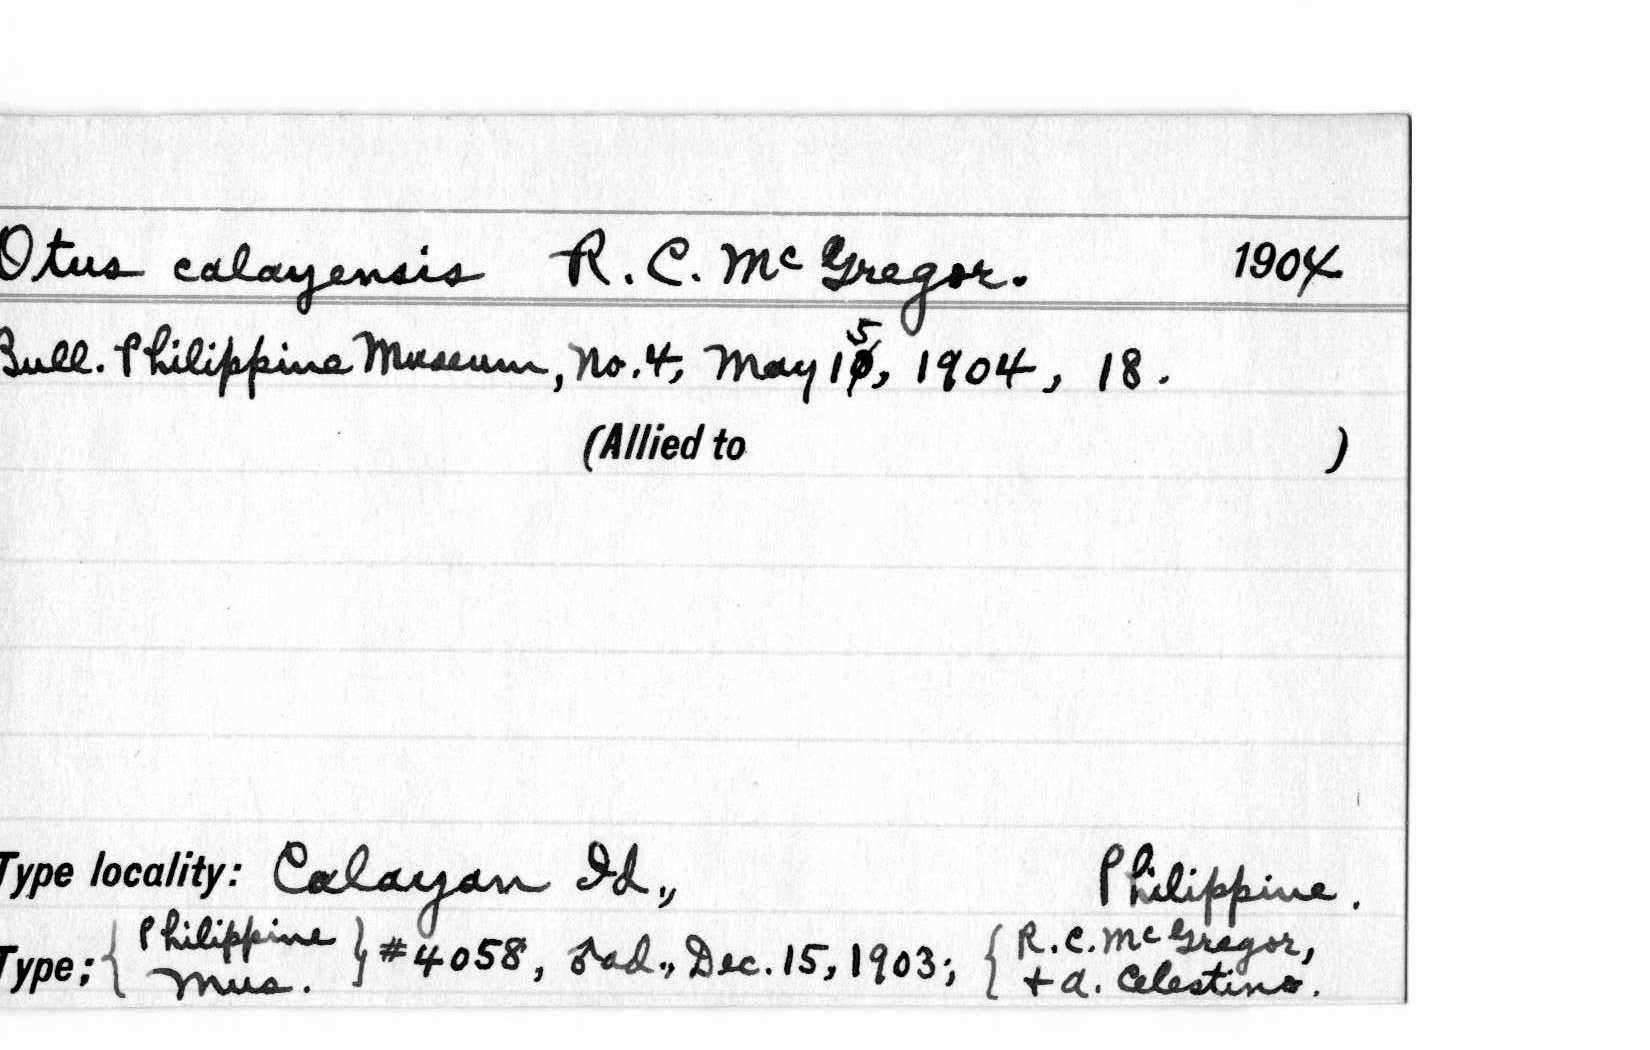 Otus calayensis R. C. McGregor. 1904
Bull. Philippine Museum, No. 4, May 15, 1904, 18.
(Allied to )
Type locality: Calayan Id., Philippine.
Type; { Philippine Mus. } #4058, ♂ad., Dec. 15, 1903; { R. C. McGregor, + A. Celestino.